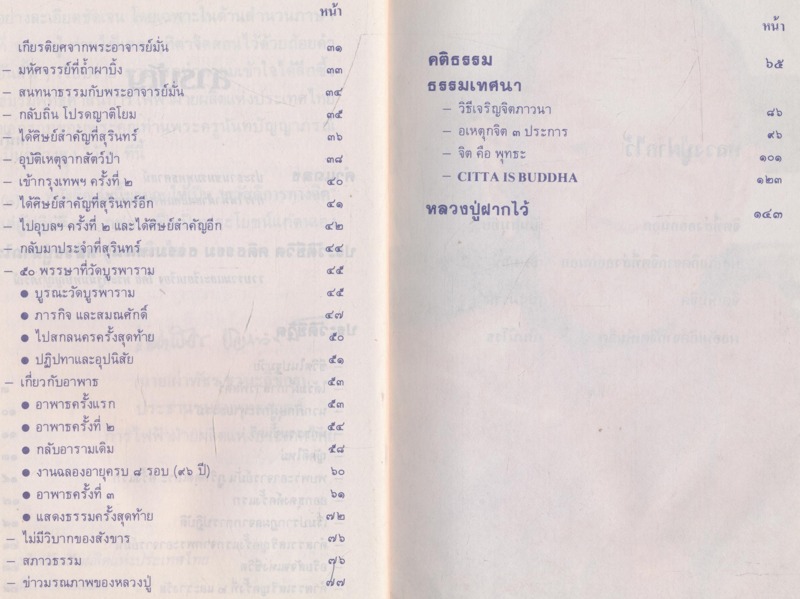 หน้า
เกียรติยศจากพระอาจารย์มั่น ๓๑
– มหัศจรรย์ที่ถ้ำผาบิ้ง ๓๓
– สนทนาธรรมกับพระอาจารย์มั่น ๓๔
– กลับถิ่น โปรดญาติโยม ๓๕
– ได้ศิษย์สำคัญที่สุรินทร์ ๓๖
– อุบัติเหตุจากสัตว์ป่า ๓๘
– เข้ากรุงเทพฯ ครั้งที่ ๒ ๔๐
– ได้ศิษย์สำคัญที่สุรินทร์อีก ๔๑
– ไปอุบลฯ ครั้งที่ ๒ และได้ศิษย์สำคัญอีก ๔๒
– กลับมาประจำที่สุรินทร์ ๔๔
– ๕๐ พรรษาที่วัดบูรพาราม ๔๕
● บูรณะวัดบูรพาราม ๔๕
● ภารกิจ และสมณศักดิ์ ๔๗
● ไปสกลนครครั้งสุดท้าย ๕๐
● ปฏิปทาและอุปนิสัย ๕๑
– เกี่ยวกับอาพาธ ๕๓
● อาพาธครั้งแรก ๕๓
● อาพาธครั้งที่ ๒ ๕๔
● กลับอารามเดิม ๕๘
● งานฉลองอายุครบ ๘ รอบ (๙๖ ปี) ๖๐
● อาพาธครั้งที่ ๓ ๖๑
● แสดงธรรมครั้งสุดท้าย ๗๒
– ไม่มีวิบากของสังขาร ๗๖
– สภาวธรรม ๗๖
– ข่าวมรณภาพของหลวงปู่ ๗๗
หน้า
คติธรรม ๖๕
ธรรมเทศนา
– วิธีเจริญจิตภาวนา ๘๖
– อเหตุกจิต ๓ ประการ ๙๖
– จิต คือ พุทธะ ๑๐๑
– CITTA IS BUDDHA ๑๒๓
หลวงปู่ฝากไว้ ๑๔๓